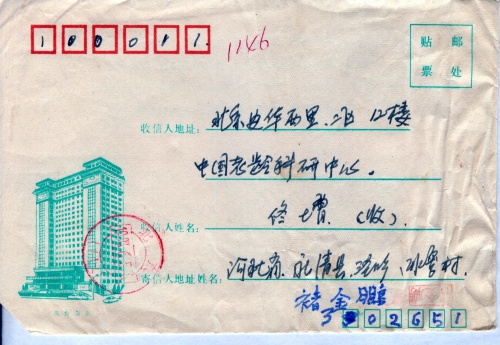 100011.
1146
贴 邮
票 处
收信人地址: 北京安华西里、二区 12楼
中国老龄科研中心。
收信人姓名: 佟增 (收)
寄信人地址姓名: 河北省、永清县
褚金鹏
302651